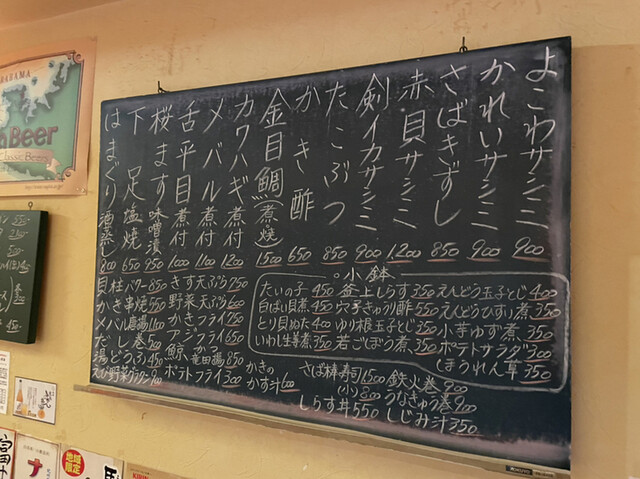 よこわサシミ 900
かれいサシミ 900
さばきずし 850
赤貝サシミ 1,200
剣イカサシミ 900
たこぶつ 850
かき酢 650
金目鯛(煮焼) 1500
カワハギ煮付 1200
メバル煮付 1100
舌平目煮付 1000
桜ます味噌漬 950
下足塩焼 650
はまぐり酒蒸し 800
貝柱バター 850
かき串焼 550
だし巻 500
湯どうふ 450
きす天ぷら 750
野菜天ぷら 600
かきフライ 750
アジフライ 650
鯨かつ竜田揚 850
ポテトフライ 300
かきのかす汁 600
小鉢
たいの子 450
白ばい貝煮 450
とり貝ぬた 400
いわし生姜煮 350
釜上しらす 350
穴子きゅうり酢 550
ゆり根玉子とじ 350
若ごぼう煮 350
えんどう玉子とじ 400
えんどうひすい煮 350
小芋ゆず煮 350
ポテトサラダ 300
ほうれん草 350
さば棒寿司 1,500
しらす丼 550
鉄火巻 900
うなきゅう巻 900
しじみ汁 350
Beer
Classic Beers
地域限定